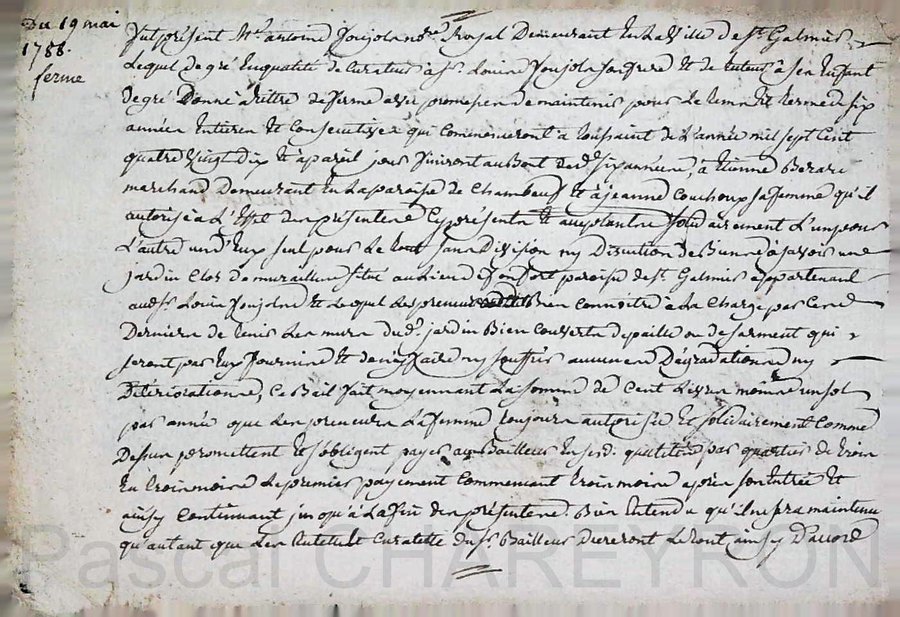 Du 19 mai
1788.
ferme
Fut présent Me antoine Poujol no.re Royal Demeurant En La ville de St. Galmier
Lequel de gré En qualité de Curateur à sr. Louis Poujol son frere Et de tuteur à ses Enfant
de gré Donne à titre de ferme avec promesse de maintenir pour Le tems Et terme de six
années Entieres Et Consecutives qui Commenceront à toussaint de L'année mil sept Cent
quatre Vingt Dix Et à pareil jour finiront au Bout desd. six années, à Etienne
marchand Demeurant En La paroisse de Chambeuf Et à jeanne Couchoux sa femme qu'il
autorise à L'Effet des présentes Cy présents Et acceptants solidairement L'un pour
L'autre un d'Eux seul pour Le tout sans Division ny Discution de Biens à sçavoir une
jardin Clos de murailles situé au Lieu paroisse de St. Galmier appartenant
aud. sr. Louis Poujol Et Lequel Les preneurs ont dit Bien Connoitre à La Charge par Ces
Derniers de tenir Les murs dud. jardin Bien Couverts de paille ou de sarment qui
seront par Eux fournis Et de n'y faire ny souffrir aucunes Dégradations ny
Détériorations, Ce Bail fait moyennant La somme de Cent Livres moins un sol
par année que Les preneurs La femme toujours autorisée Et solidairement Comme
Dessus promettent Et s'obligent payer au Bailleur Esd. qualités par quartier de trois
En trois mois Le premier payement Commençant trois mois après son Entrée Et
ainsy Continuant jusqu'à La fin des présentes. Bien Entendu qu'il ne sera maintenu
qu'autant que Les tutelle Curatelle du sr. Bailleur Dureront Le tout ainsy D'accord
Pascal CHAREYRON